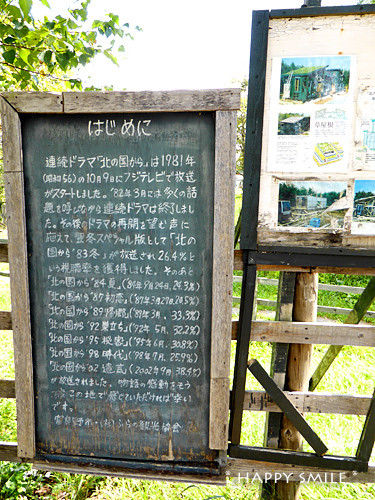 HAPPY SMILE
はじめに
連続ドラマ「北の国から」は1981年
(昭和56)の10月9日にフジテレビで放送
がスタートしました。'82年3月には多くの話
題を呼びながら連続ドラマは終了しまし
た。その後ドラマの再開を望む声に
応えて、翌冬スペシャル版として「北の
国から'83冬」が放送され26.4%と
いう視聴率を獲得しました。そのあと
「北の国から'84夏」('84年9月24.3%)
「北の国から'87初恋」('87年3月20.5%)
「北の国から'89帰郷」('89年3月、33.3%)
「北の国から'92巣立ち」('92年5月、32.2%)
「北の国から'95秘密」('95年6月、30.8%)
「北の国から'98時代」('98年7月、25.9%)
「北の国から'02遺言」(2002年9月38.4%)
が放送されました。物語の感動をそう
ぞ、この地で感じていただければ幸い
です。
富良野市・(社)ふらの観光協会
草屋根
HAPPY SMILE